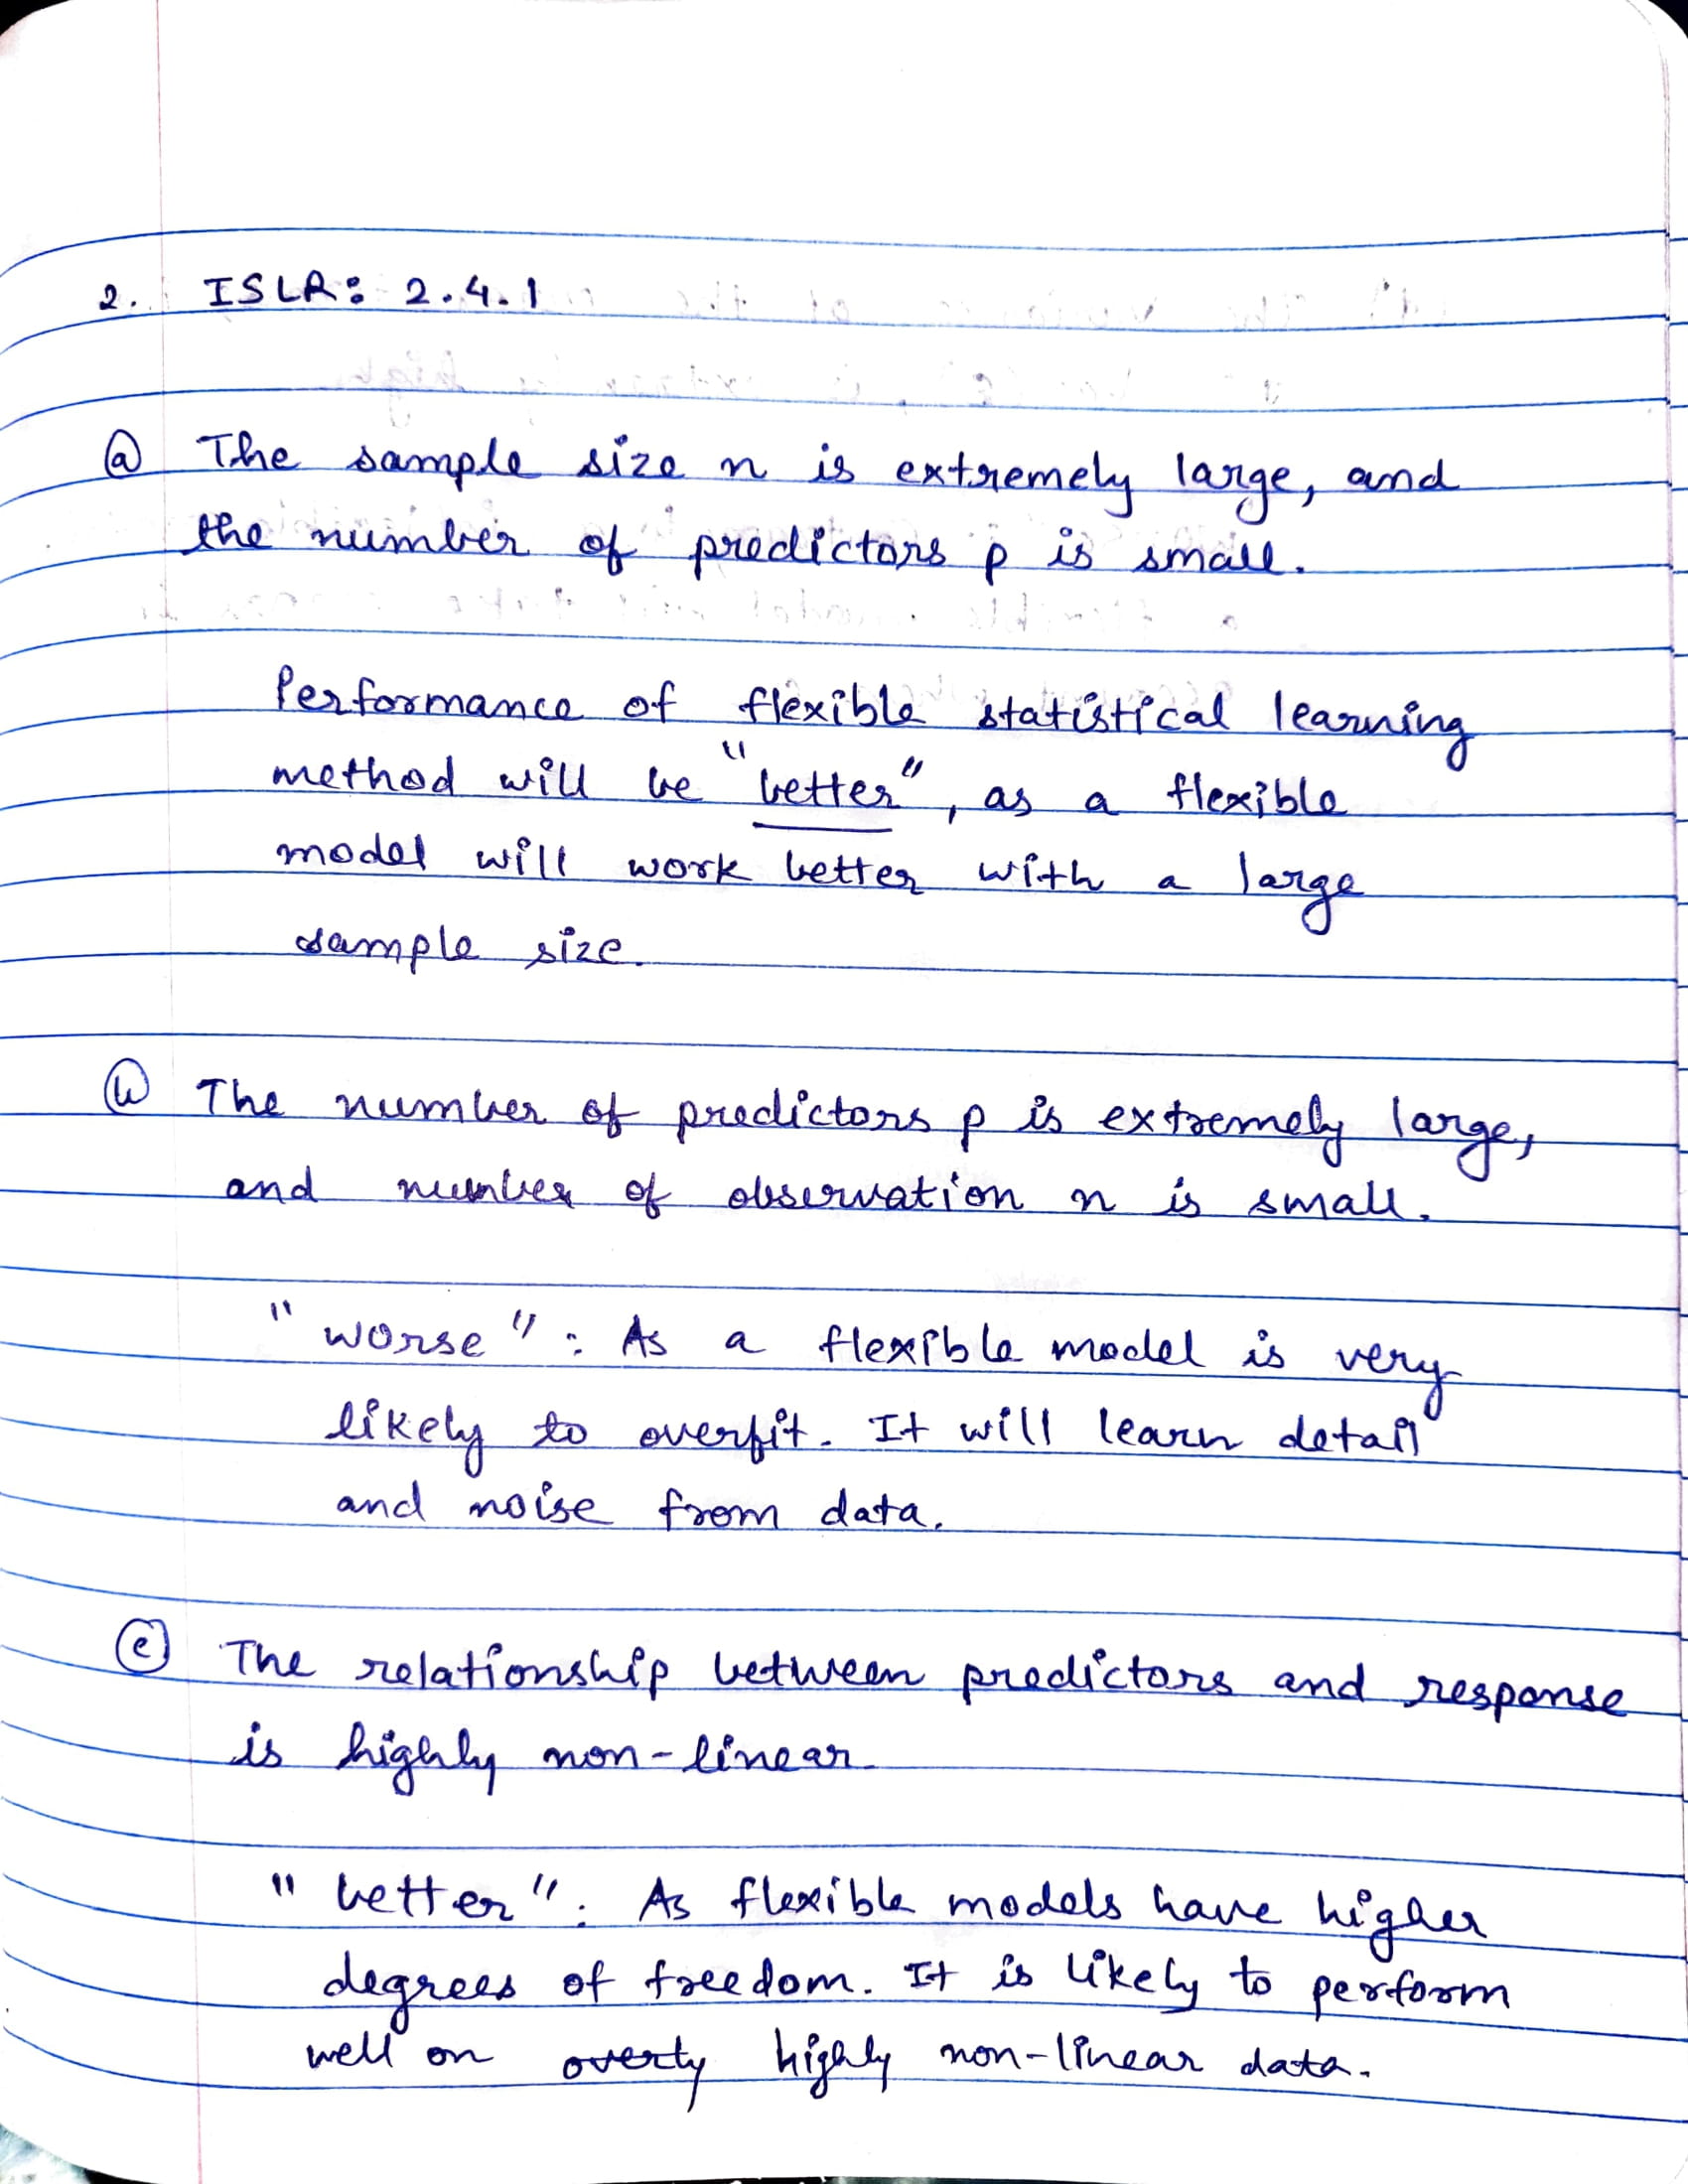 2. ISLR: 2.4.1
(a) The sample size n is extremely large, and
the number of predictors p is small.
Performance of flexible statistical learning
method will be "better", as a flexible
model will work better with a large
sample size.
(b) The number of predictors p is extremely large,
and number of observation n is small.
"worse": As a flexible model is very
likely to overfit. It will learn detail
and noise from data.
(c) The relationship between predictors and response
is highly non-linear.
"better": As flexible models have higher
degrees of freedom. It is likely to perform
well on overty highly non-linear data.